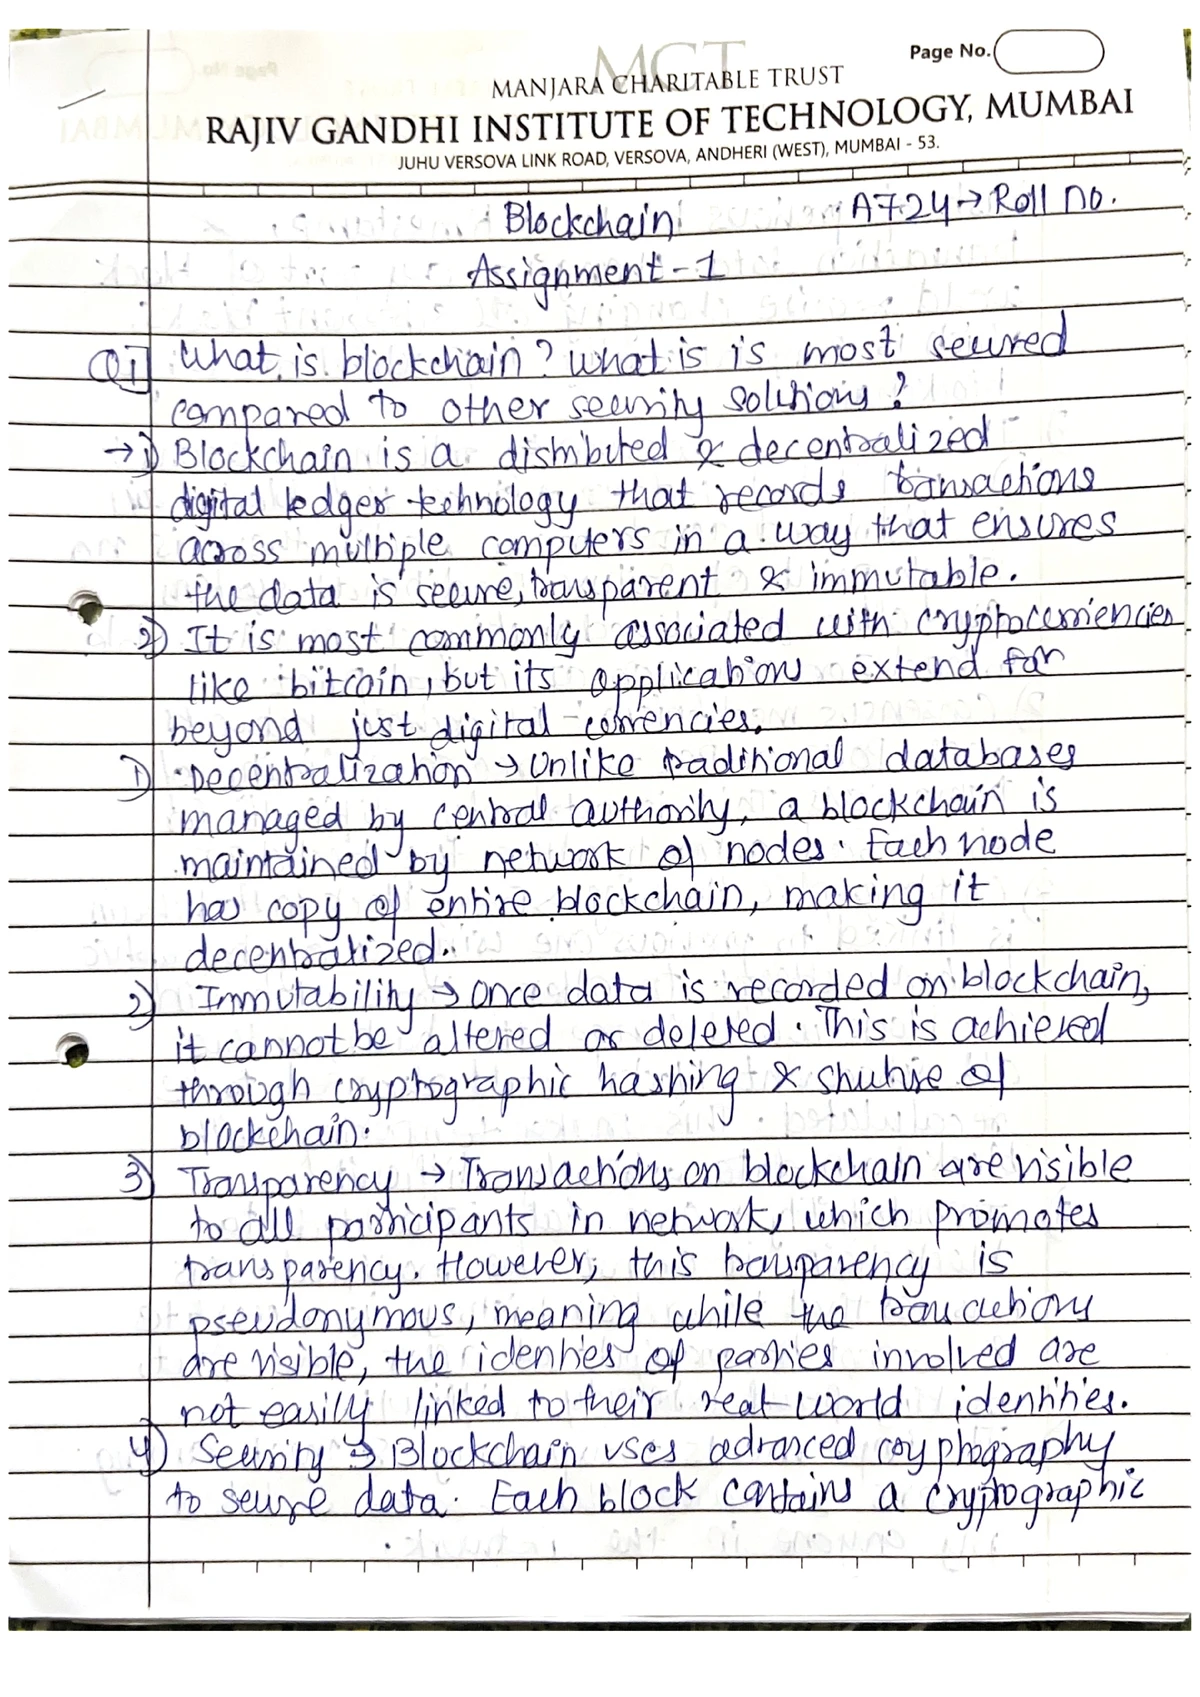 MCT
Page No.
MANJARA CHARITABLE TRUST
RAJIV GANDHI INSTITUTE OF TECHNOLOGY, MUMBAI
JUHU VERSOVA LINK ROAD, VERSOVA, ANDHERI (WEST), MUMBAI - 53.
Blockchain A724→Roll no.
Assignment-1
Q1] What is blockchain? What is is most secured
compared to other security solutions?
→1) Blockchain is a distributed & decentralized
digital ledger technology that records transactions
across multiple computers in a way that ensures
the data is secure, transparent & immutable.
2) It is most commonly associated with cryptocurrencies
like bitcoin, but its applications extend far
beyond just digital currencies.
1) Decentralization → Unlike traditional databases
managed by central authority, a blockchain is
maintained by network of nodes. Each node
has copy of entire blockchain, making it
decentralized.
2) Immutability → Once data is recorded on blockchain,
it cannot be altered or deleted. This is achieved
through cryptographic hashing & structure of
blockchain.
3) Transparency → Transactions on blockchain are visible
to all participants in network, which promotes
transparency. However, this transparency is
pseudonymous, meaning while the transactions
are visible, the identities of parties involved are
not easily linked to their real world identities.
4) Security → Blockchain uses advanced cryptography
to secure data. Each block contains a cryptographic